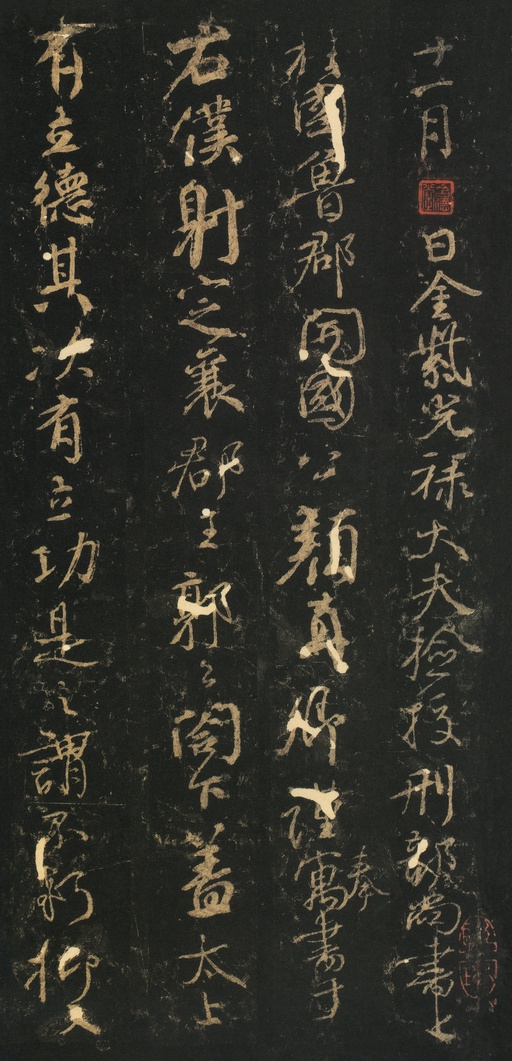 十一月日金紫光祿大夫檢校刑部尚書上
柱國魯郡開國公顏真卿謹奉寓書于
右僕射定襄郡王郭公閤下蓋太上
有立德其次有立功是之謂不朽抑又